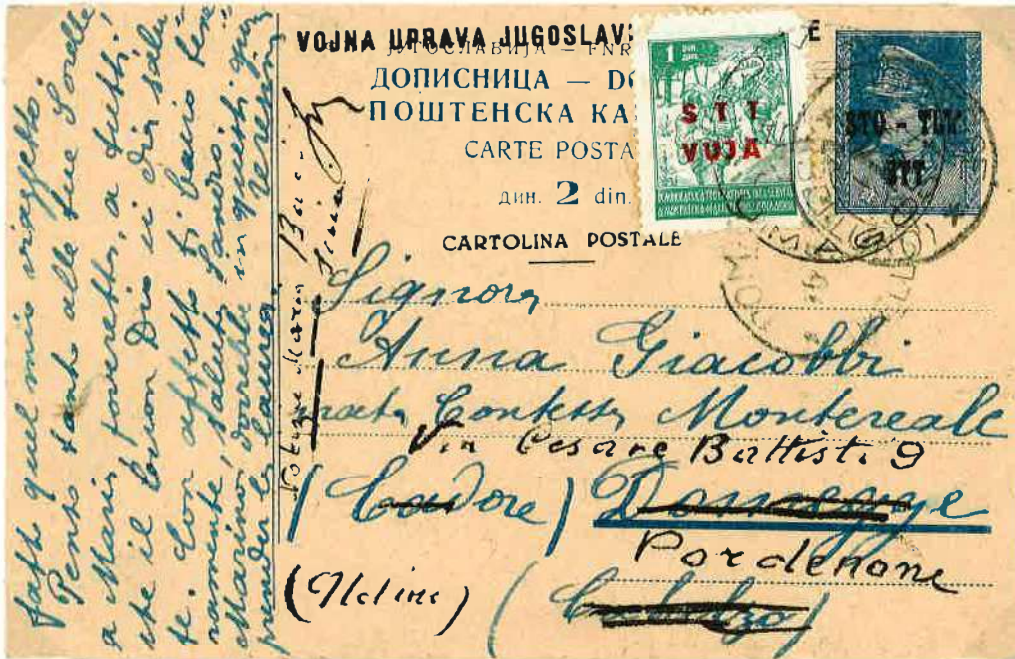 VOJNA UPRAVA JUGOSLAV E
ЈУГОСЛАВИЈА — FNR
ДОПИСНИЦА — DO
ПОШТЕНСКА КА
CARTE POSTA
дин. 2 din.
CARTOLINA POSTALE
1
STT
VUJA
STO - TRŽ
STT
UMAGO
Signora
Anna Giacobbi
nata Contessa Montereale
Via Cesare Battisti 9
(Cadore) Domegge
Pordenone
(Udine) (Calalzo)
fatto quel mio viaggetto.
Penso tanto alle tue Sorelle,
a Mario, poveretto, a tutti;
che il buon Dio vi dia salu-
te. Con affetto ti bacio tene-
ramente, saluta Sandro,
Marino, dovrebbe in questi giorni
prender la laurea.